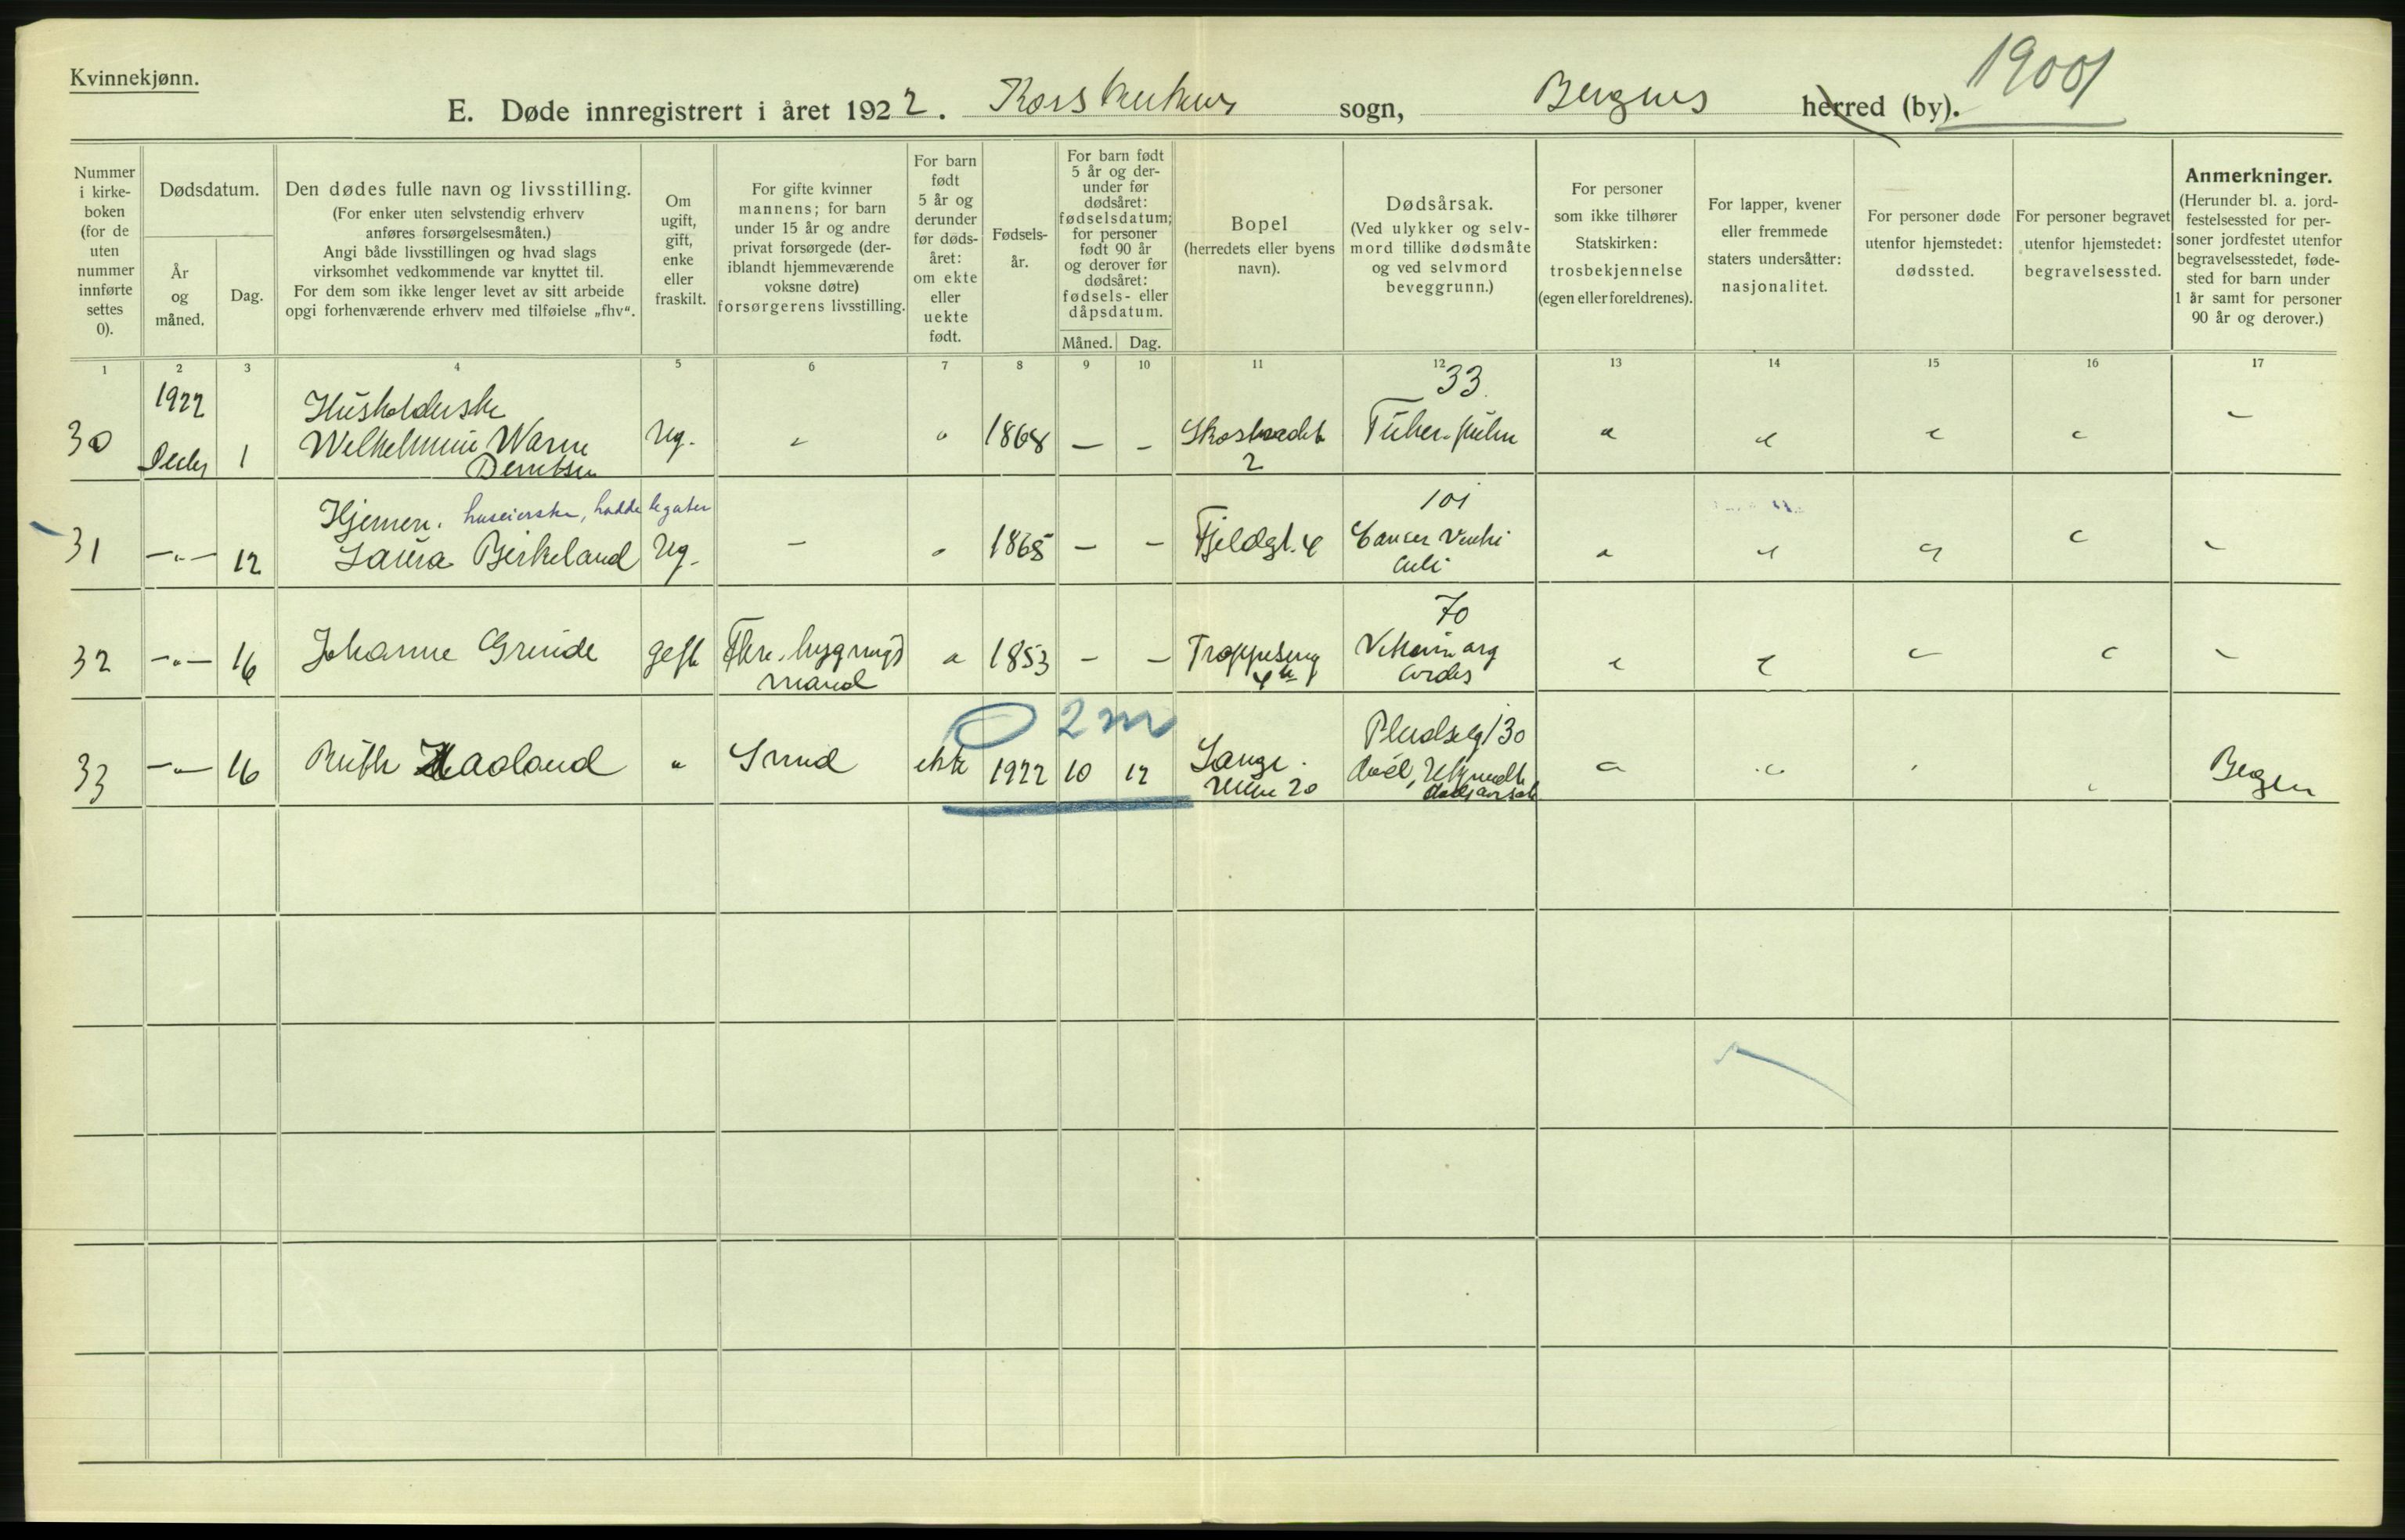 Kvinnekjønn.
19001
E. Døde innregistrert i året 1922. Korskirkens sogn, Bergens herred (by).
Nummer i kirke-boken (for de uten nummer innførte settes 0).
Dødsdatum.
År og måned.
Dag.
Den dødes fulle navn og livsstilling.
(For enker uten selvstendig erhverv
anføres forsørgelsesmåten.)
Angi både livsstillingen og hvad slags
virksomhet vedkommende var knyttet til.
For dem som ikke lenger levet av sitt arbeide
opgi forhenværende erhverv med tilføielse „fhv“.
Om ugift, gift, enke eller fraskilt.
For gifte kvinner
mannens; for barn
under 15 år og andre
privat forsørgede (der-
iblandt hjemmeværende
voksne døtre)
forsørgerens livsstilling.
For barn født 5 år og derunder før døds-året: om ekte eller uekte født.
Fødsels-år.
For barn født
5 år og der-
under før
dødsåret:
fødselsdatum;
for personer
født 90 år
og derover før
dødsåret:
fødsels- eller
dåpsdatum.
Måned. Dag.
Bopel
(herredets eller byens
navn).
Dødsårsak.
(Ved ulykker og selv-
mord tillike dødsmåte
og ved selvmord
beveggrunn.)
For personer
som ikke tilhører
Statskirken:
trosbekjennelse
(egen eller foreldrenes).
For lapper, kvener
eller fremmede
staters undersåtter:
nasjonalitet.
For personer døde
utenfor hjemstedet:
dødssted.
For personer begravet
utenfor hjemstedet:
begravelsessted.
Anmerkninger.
(Herunder bl. a. jord-
festelsessted for per-
soner jordfestet utenfor
begravelsesstedet, føde-
sted for barn under
1 år samt for personer
90 år og derover.)
1 2 3 4 5 6 7 8 9 10 11 12 13 14 15 16 17
1922 Husholderske 33
30 Decbr 1 Ug. - " 1868 - - 2
Hjemen. huseierske, hadde legater 101
31 -"- 12 Laura Birkeland Ug. - " 1865 - - Fjeldgt. 4 Cancer Ventri
culi
70
32 -"- 16 Johanne Grinde gift " 1853 - -
mand cordis
0 2 m
130
33 -"- 16 Ruth Haaland " Smed ekte 1922 10 12 20 Bergen